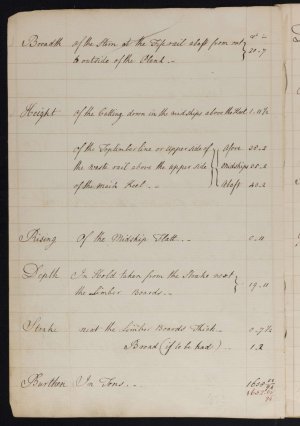 Breadth of the Stern at the Toprail abaft from out
to outside of the Plank .. 20 .. 7
Height Of the Cutting down in the midships above the Keel 1 .. 11½
of the Toptimberline or upper side of
the waste rail above the upper side
of the main Keel ..
afore
midships
abaft 40 .. 2
Rising Of the Midship Flatt .. 0 .. 11
Depth In Hold taken from the Strake next
the Limber Boards .. 19 .. 11
Strake next the Limber Boards Thick .. 0 .. 7½
Broad (if to be had) .. 1 .. 2
Burthen In Tons ..